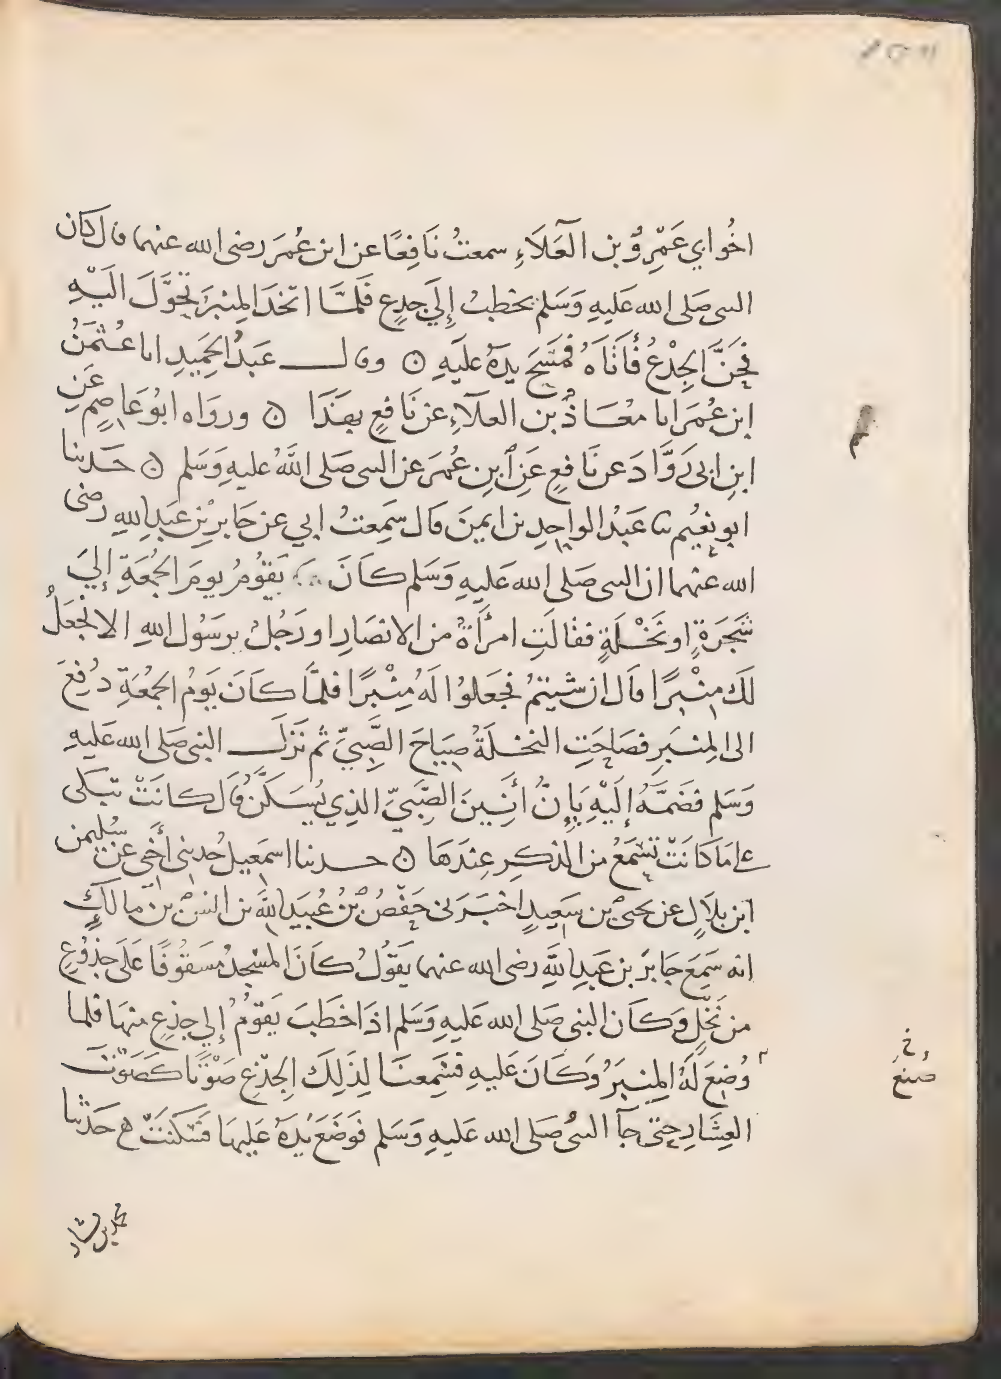 اخُو ابي عَمْرِو بن العَلَاءِ سمعتُ نَافِعًا عن ابن عُمَرَ رضى الله عنهما قال كان
النبى صَلى الله عَليهِ وَسَلم يخطبُ إِلَي جذعٍ فَلمَّا اتخذَ المِنبَرَ تَحوَّلَ اليْهِ
فَحَنَّ الجِذْعُ فَأَتَاهُ فمسَحَ يدَهُ عَليَهِ ۞ وقالــ عَبدُ الحَمِيدِ انا عُثْمَنُ
ابن عُمَرَ انا معُاذُ بن العلاَءِ عن نَافعٍ بهَذَا ۞ ورواه ابوُ عَاصِمٍ عَنِ
ابنِ ابى رَوَّادَ عن نَافعٍ عَنِ ابنِ عُمَرَ عن النبى صَلى اللهُ عليهِ وَسَلم ۞ حَدثنا
ابو نعَيُم ثنا عَبْدُ الواحِدِ بن ايمنَ قال سَمِعتُ ابي عن جَابرِ بْنِ عَبدِ اللهِ رضى
الله عنهما ان النبى صَلى الله عَليهِ وَسَلم كانَ يَقوُمُ يومَ الجمُعَةِ إليَ
شَجَرَةٍ او نَخْلَةٍ فقَالَتِ امرأَةٌ من الانصَارِ او رَجُلٌ يرسَوُل اللهِ الا نَجْعَلُ
لَكَ مِنْبرًا قاَل ان شيتمُ فجعَلوُا لَهُ مِنْبَرًا فلمَّا كانَ يَومُ الجمُعَةِ دُفِعَ
الى المِنبَرِ فصَاحَتِ النخلَةُ صِيَاحَ الصَّبِيِّ ثم نَزَلَــ النبى صَلى الله عَليَهِ
وَسَلم فضَمَّهُ إلَيْهِ يَإِنُّ أَنِينَ الصَّبَيِّ الذِي يُسَكَّنُ قَال كانَتْ تبكى
على مَا كانَتْ تسَمَعُ من الذكرِ عِندَهَا ۞ حــدثنا اسمَعِيل حدثنى أَخى عن سُليمن
ابن بلاَلٍ عن يحيى بن سَعِيدٍ اخبَرَنى حَفْصُ بْنُ عُبيَدِ اللهِ بن انس بن مالكٍ
انه سَمِعَ جَابرَ بن عَبدِ اللهِ رضى الله عنهما يقَوُلُ كانَ المَسْجدُ مسَقوُفًا عَلَى جذوُعٍ
من نَخْلٍ وَكان النبى صَلى الله عَليَهِ وَسَلم اذَا خَطَبَ يَقوُمُ إلي جذعٍ منهَا فلما
وُضِعَ لَهُ المِنبَرُ وَكانَ عَليَهِ فسَمِعنَا لِذَلِكَ الجِذْعِ صَوْتًا كصَوْتِ
العِشَارِ حتى جآ النبى صَلى الله عَليَهِ وَسَلم فوَضَعَ يَدَهُ عَليهَا فسَكنَتْ ۞ حَدثنا
خ
صنع
محمد بن بشار